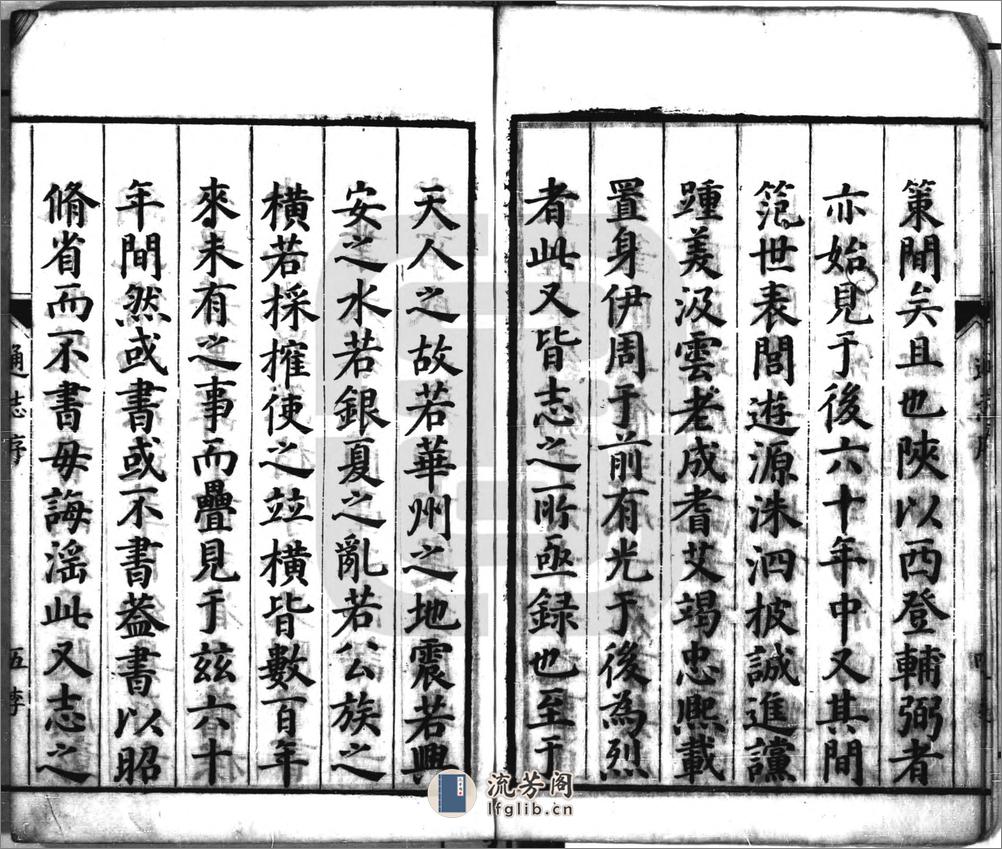 策間矣且也陝以西登輔弼者
亦始見于後六十年中又其間
範世表閭遊源洙泗披誠進讜
踵美汲雲老成耆艾竭忠熙載
置身伊周于前有光于後為烈
者此又皆志之所亟録也至于
天人之故若華州之地震若興
安之水若銀夏之亂若公族之
橫若採擢使之竝橫皆數百年
來未有之事而疊見于兹六十
年間然或書或不書葢書以昭
脩省而不書毋誨滛此又志之
通志序
五
流芳阁
lfglib.cn